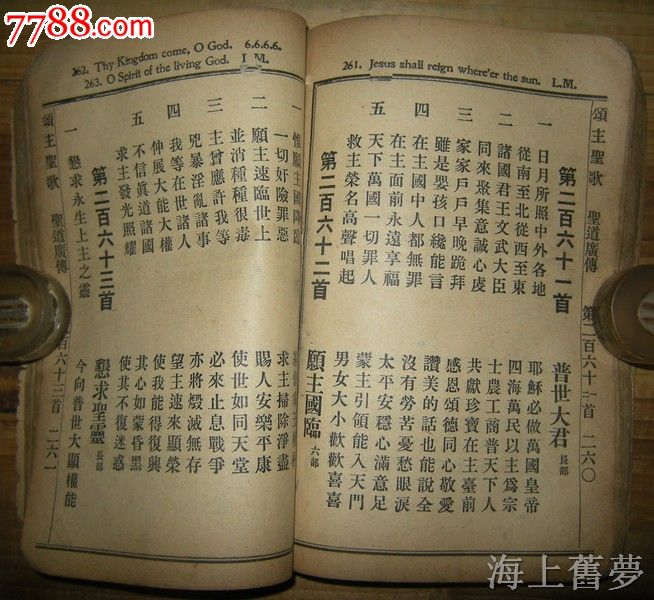 7788.com
261. Jesus shall reign where'er the sun. L.M.
頌主聖歌 聖道廣傳 第二百六十一首 二六〇
第二百六十一首 普世大君 長部
一 日月所照中外各地 耶穌必做萬國皇帝
從南至北從西至東 四海萬民以主爲宗
二 諸國君王文武大臣 士農工商普天下人
同來聚集意誠心虔 共獻珍寶在主臺前
三 家家戶戶早晚跪拜 感恩頌德同心敬愛
雖是嬰孩口纔能言 讚美的話也能說全
四 在主國中人都無罪 沒有勞苦憂愁眼淚
在主面前永遠享福 太平安穩心滿意足
五 天下萬國一切罪人 蒙主引領能入天門
救主榮名高聲唱起 男女大小歡歡喜喜
第二百六十二首 願主國臨 六部
262. Thy Kingdom come, O God. 6.6.6.6.
263. O Spirit of the living God. L.M.
一 惟願主國降臨
一切奸險罪惡 求主掃除淨盡
二 願主速臨世上 賜人安樂平康
並消種種很毒 使世如同天堂
三 主曾應許我等 必來止息戰爭
兇暴淫亂諸事 亦將燬滅無存
四 我等在世諸人 望主速來顯榮
伸展大能大權 使我能得復興
五 不信眞道諸國 其心如蒙昏黑
求主發光照耀 使其不復迷惑
第二百六十三首 懇求聖靈 長部
一 懇求永生上主之靈 今向普世大顯權能
頌主聖歌 聖道廣傳 百六十三首 二六一
海上舊夢